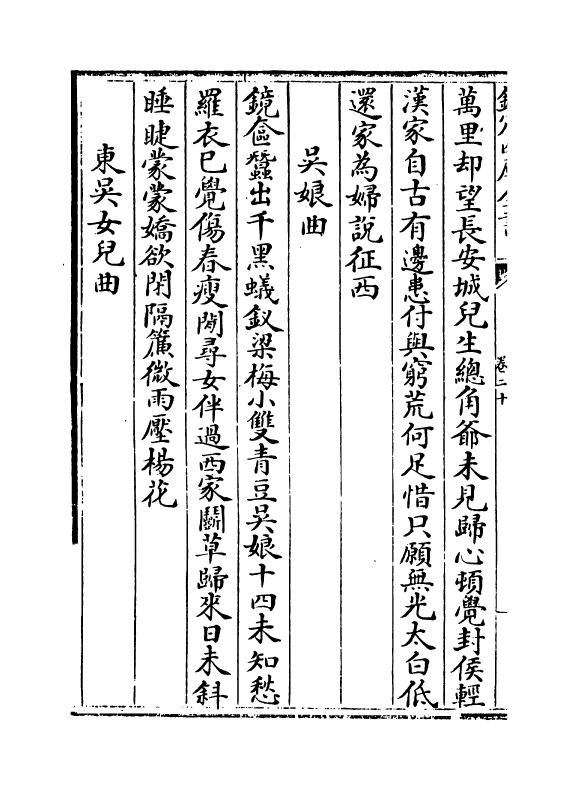 卷二十
萬里却望長安城兒生總角爺未見歸心頓覺封侯輕
漢家自古有邊患付與窮荒何足惜只願無光太白低
還家為婦說征西
吳娘曲
鏡奩蠶出千黑蟻釵梁梅小雙青豆吳娘十四未知愁
羅衣已覺傷春瘦閒尋女伴過西家鬬草歸來日未斜
睡睫蒙蒙嬌欲閉隔簾微雨壓楊花
東吳女兒曲